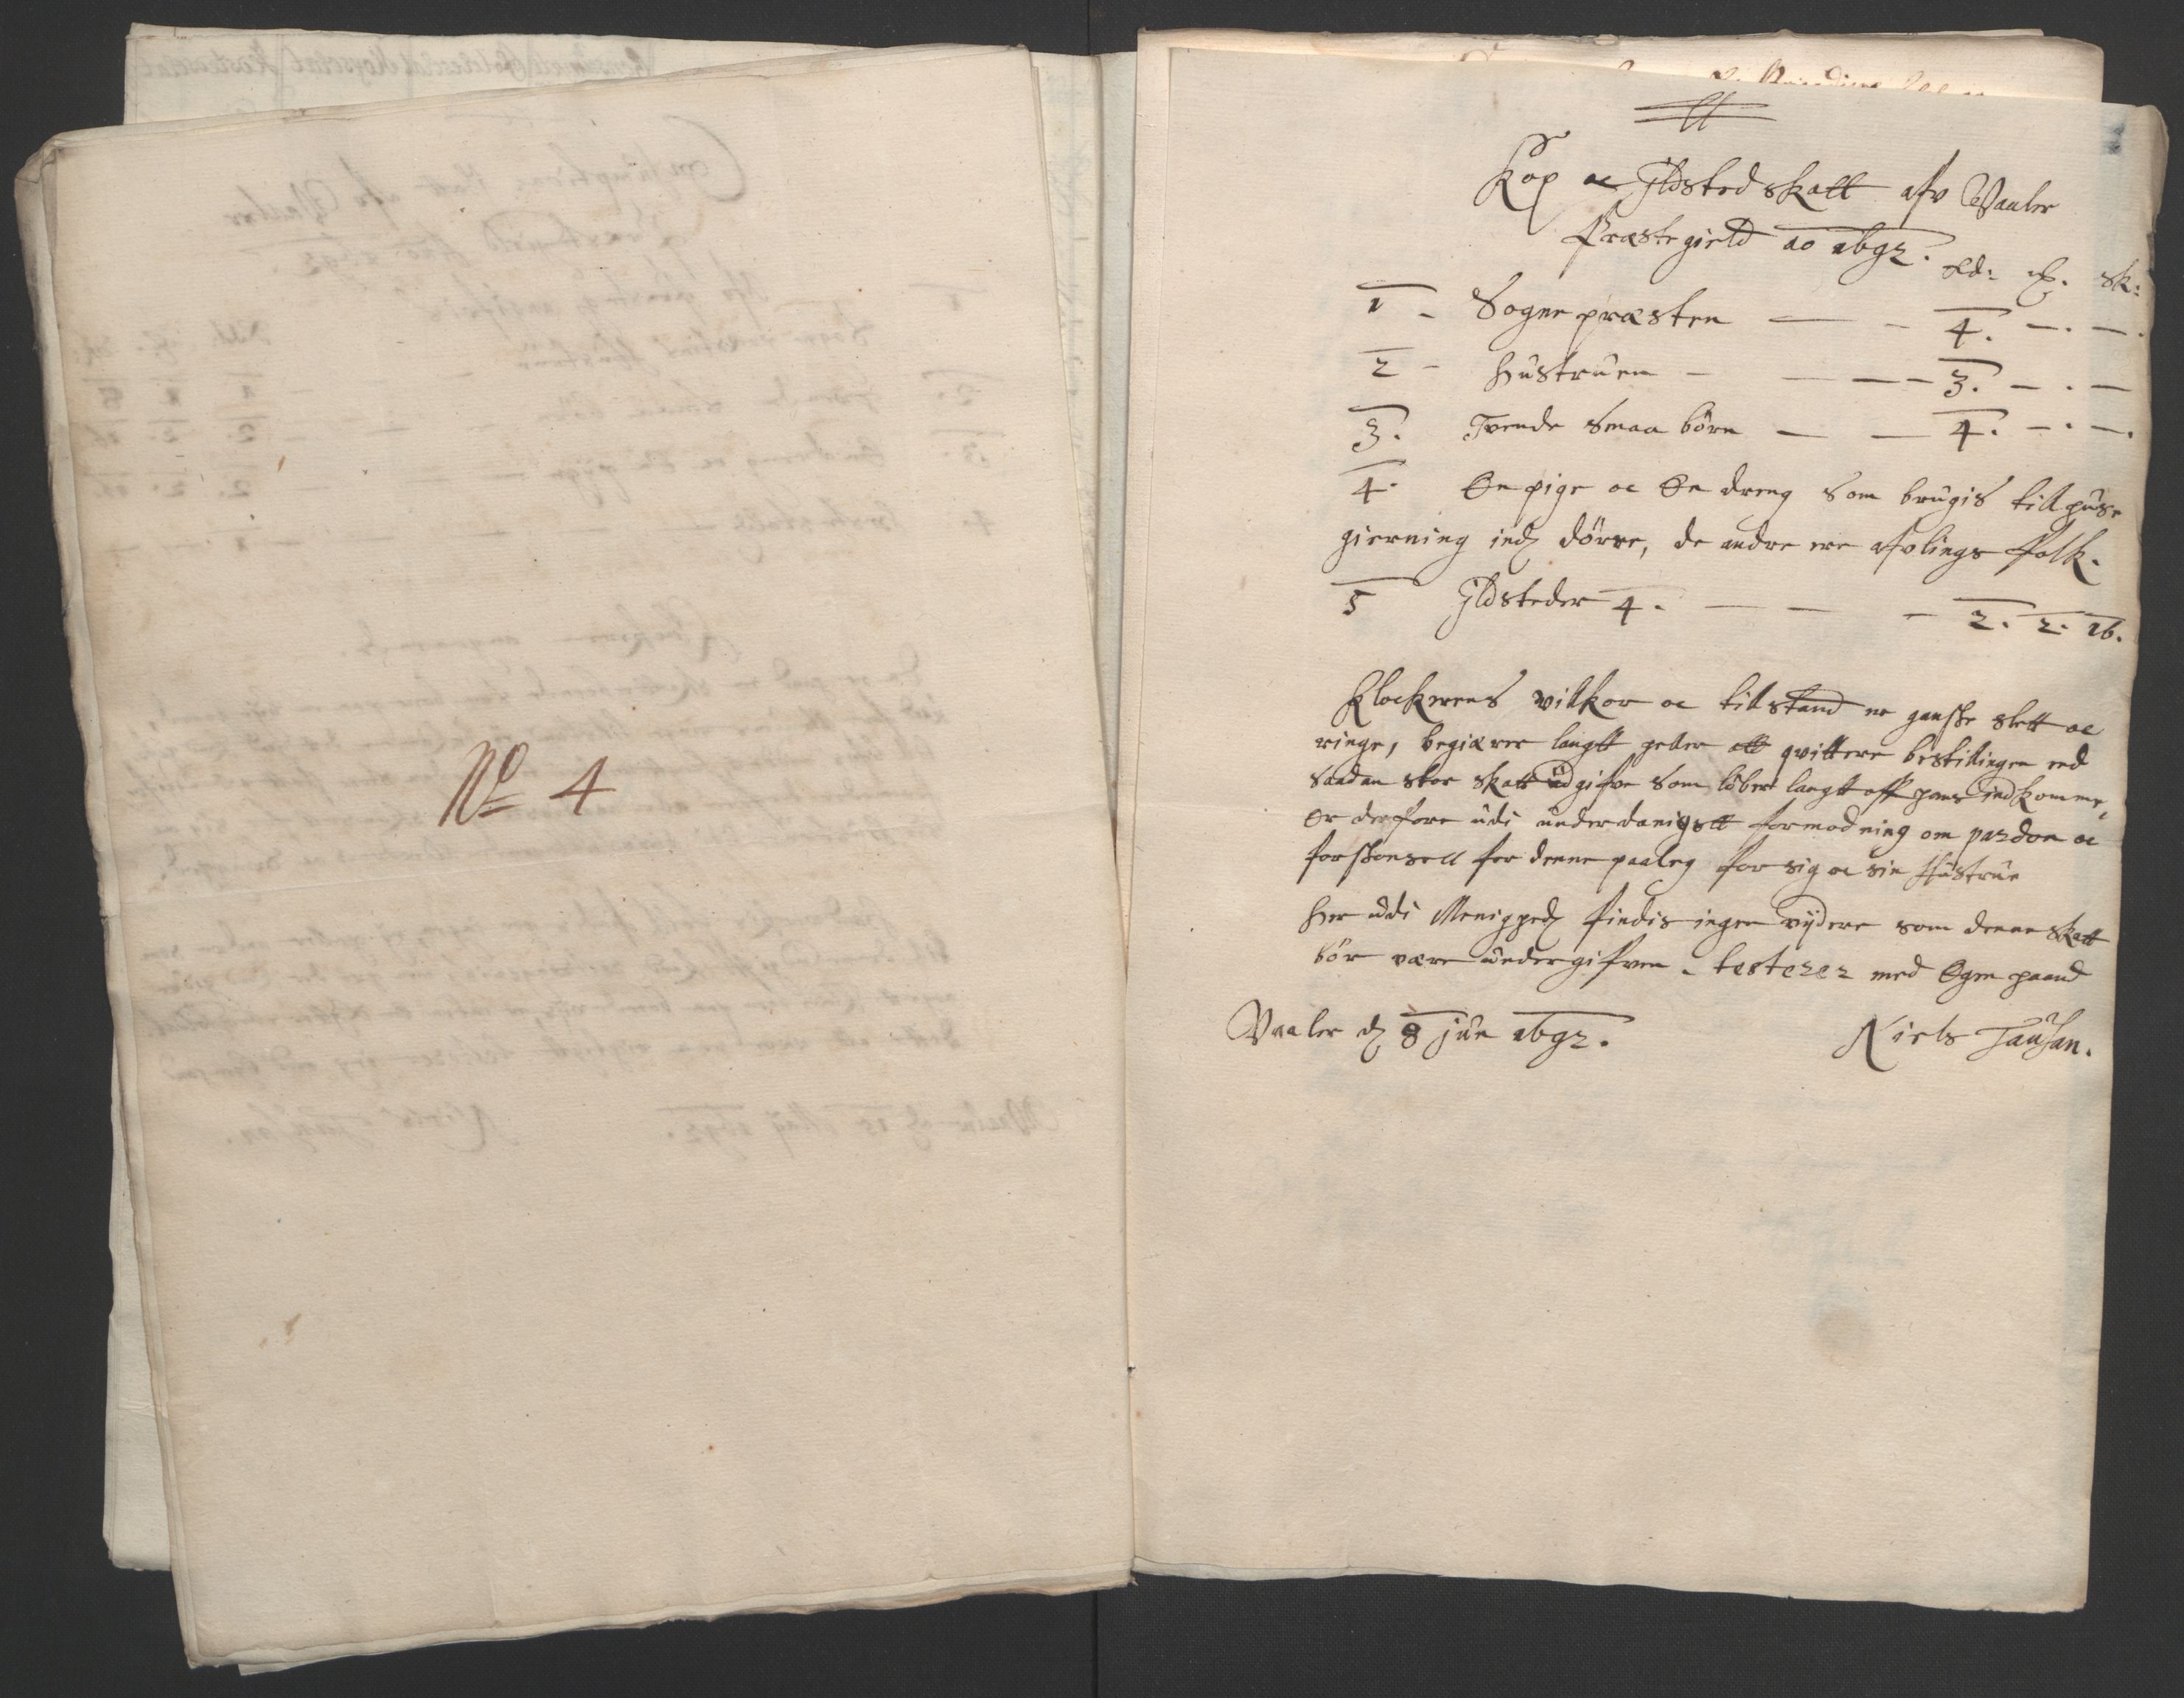 No 4
Kop oc Ildsted skatt afv Vaaler
Præstegield ao 1692.
Rd: sk:
1 - Sognepræsten — - 4. —. —.
2 - Hustruen - — — - 3. —. —
3. Tvende Smaa børn — — 4. —. —.
4. En pige oc En dreng Som brugis till huse
gierning ind dörre, de andre ere afvlings folk.
5 Ildsteder 4. — — - 2. 2. 16.
Klockerens vilkor oc tillstand er gansche slett oc
ringe, begiærer langtt heller att qvittere bestillingen end
Saadan stor skatt udgifve Som löber langtt off hans indkomme,
Er derfore udi underdanigst formodning om pardon oc
forschonsell for denne paaleg for sig oc sin Hustrue
Her udi Menighed findis ingen vijdere som denne skatt
bör være undergifven. testerer med Egen haand
Vaaler d 8 jun 1692.
Niels Tausan.